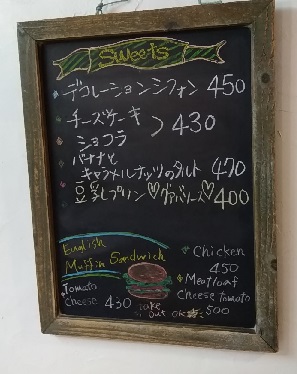 Sweets
デコレーションシフォン 450
チーズケーキ
ショコラ > 430
バナナと
キャラメルナッツのタルト 470
豆乳プリン♡グァバソース♡400
English
Muffin Sandwich
Tomato
Cheese 430
Chicken
450
Meatloaf
Cheese tomato
500
Take
out OK